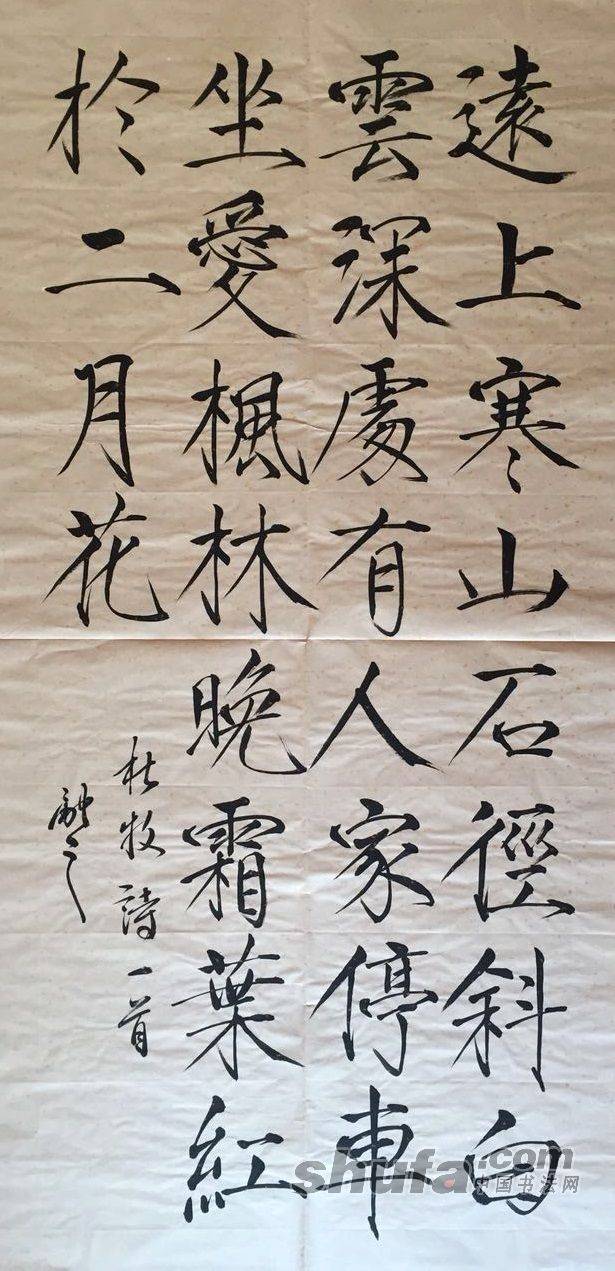 遠上寒山石徑斜白
雲深處有人家停車
坐愛楓林晚霜葉紅
於二月花
杜牧詩一首
融之
shufa.com
中国书法网